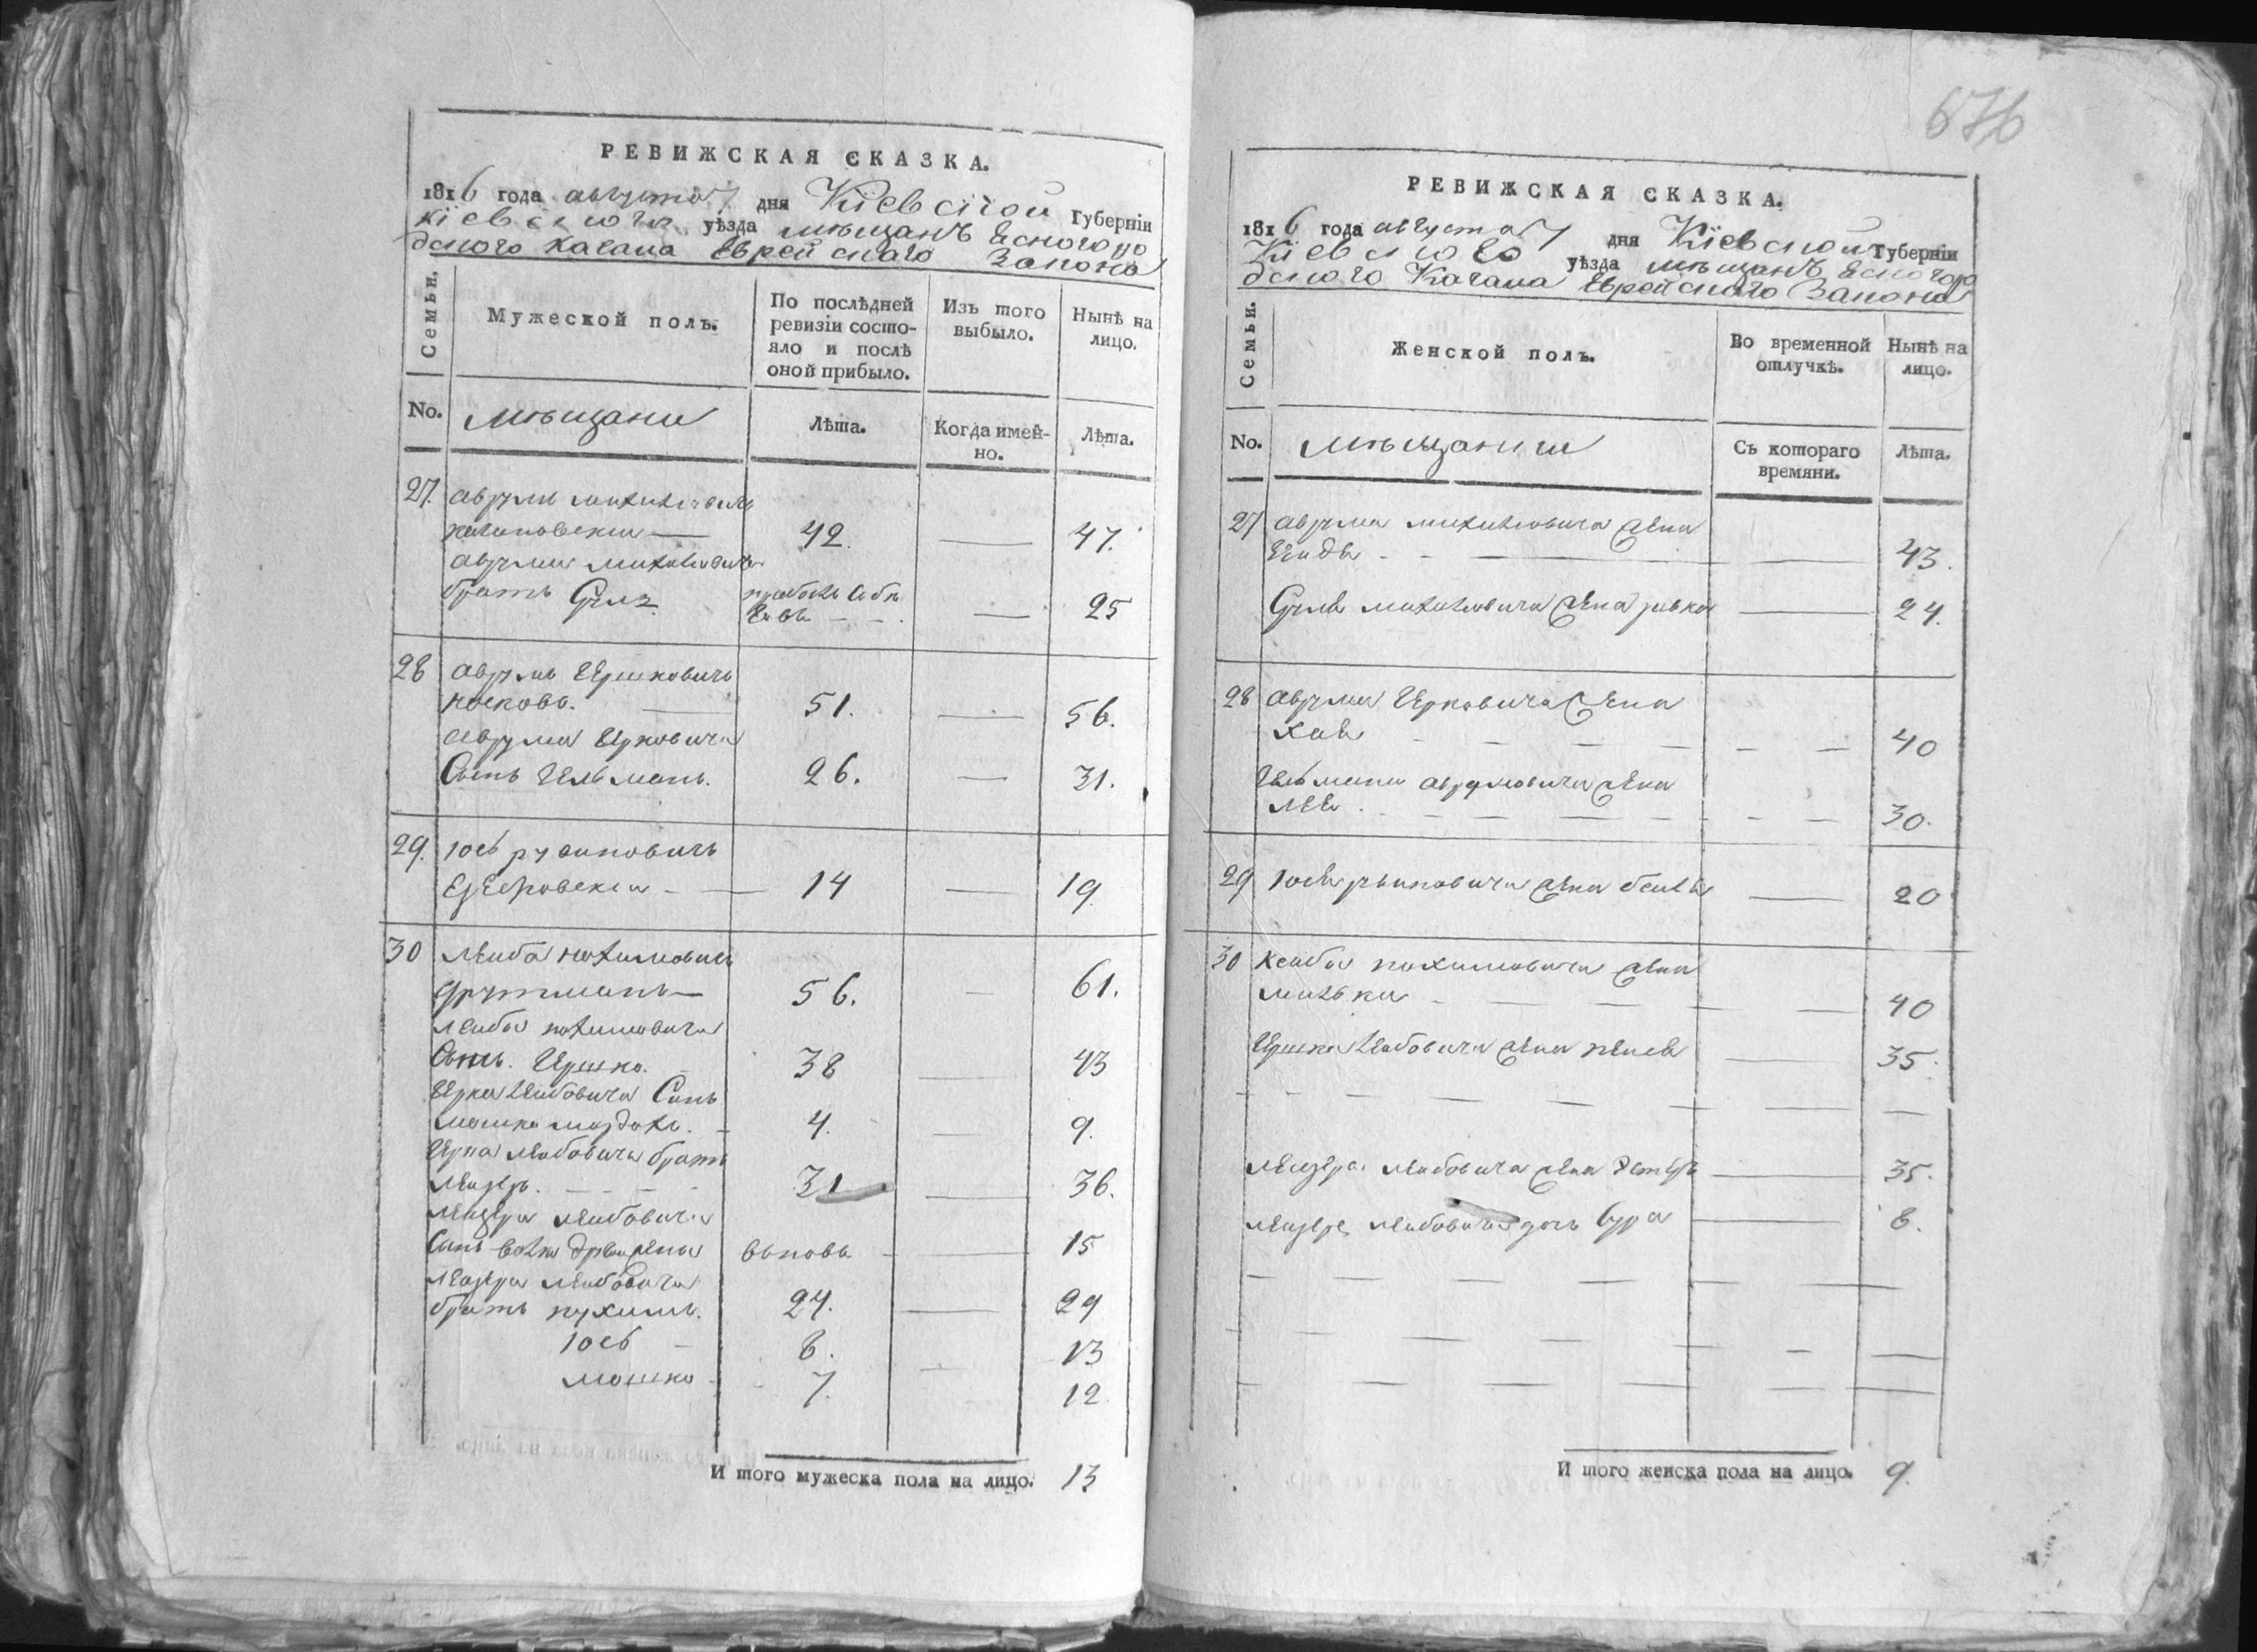 676
РЕВИЖСКАЯ СКАЗКА.
1816 года августа 7 дня Кіевской Губерніи
Кіевского уѣзда мѣщанъ Ясногоро
дского Кагала Еврейского Закона
Семьи.
Мужеской полъ.
По послѣдней ревизіи состояло и послѣ оной прибыло.
Изъ того выбыло.
Нынѣ на лицо.
No.
мѣщани
Лѣта.
Когда имен-
но.
Лѣта.
27. аврумъ
42. 47.
аврума
братъ Сруль 25
28 аврумъ Гершковичъ
носковъ. 51. 56.
аврума Герковича
Сынъ Гельманъ. 26. 31.
29. юсь рувиновичъ
14 19
30 Леиба нохимовичъ
Друтманъ 56. 61.
леиба нохимовича
Сынъ. Гершко. 38 43
Герка леибовича Сынъ
мошка мордохъ. 4. 9.
Герка леибовича братъ
леизеръ. 31 36.
леизера леибовича
Сынъ вновь 15
леизера леибовича
братъ нухимъ. 24. 29
юсь 8. 13
мошко 7. 12
И того мужеска пола на лицо. 13
РЕВИЖСКАЯ СКАЗКА.
1816 года августа 7 дня Кіевской Губерніи
Кіевского уѣзда мѣщанъ Ясногоро
дского Кагала Еврейского Закона
Семьи.
Женской полъ.
Во временной отлучкѣ.
Нынѣ на лицо.
No.
мѣщанки
Съ котораго
времяни.
Лѣта.
27 аврума жена
43.
Сруля жена ривка 24.
28 аврума Герковича жена
Хава 40
Гельмана аврумовича жена
лея 30.
29 юся рувиновича жена 20
30 леиба нохимовича жена
40
Гершка леибовича жена 35.
леизера леибовича жена 35.
леизера леибовича дочь Сура 8.
И того женска пола на лицо. 9.